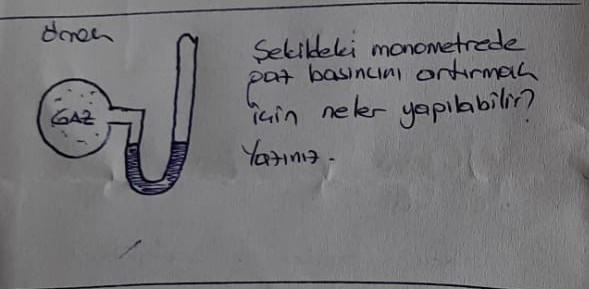 örnek
GAZ
Şekildeki monometrede
gaz basıncını artırmak
için neler yapılabilir?
Yazınız.